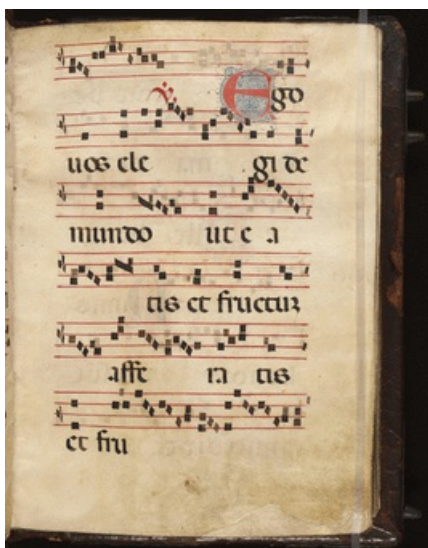 Ego
uos ele gi de
mundo ut e a
tis et fructum
affe ra tis
et fru